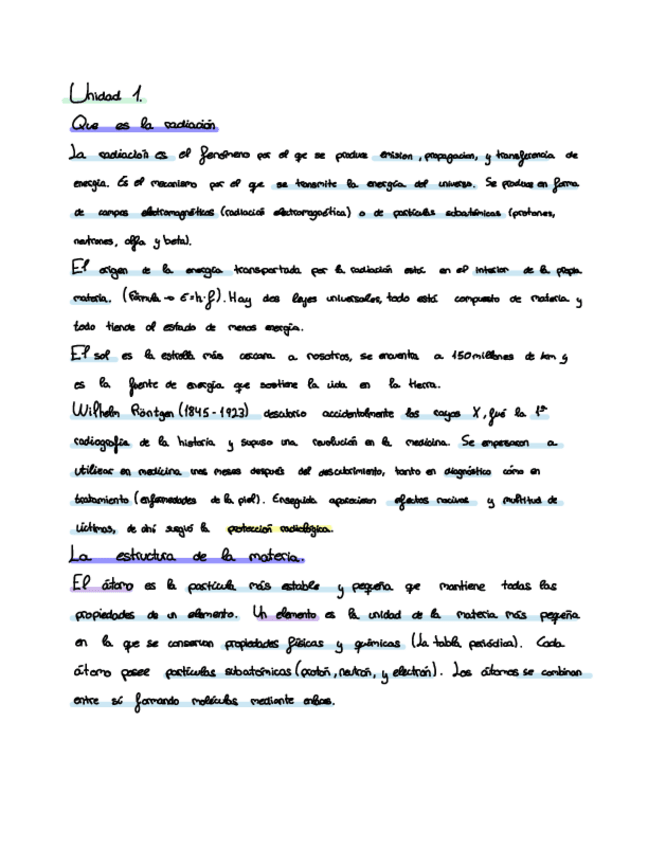 Unidad 1.
Que es la radiación
La radiación es el fenómeno por el que se produce emision, propagacion, y transferencia de
energía. Es el mecanismo por el que se transmite la energía del universo. Se produce en forma
de campos electromagnéticos (radiación electromagnética) o de partículas subatómicas (protones,
neutrones, alfa y beta).
El origen de la energía transportada por la radiación está en el interior de la propia
materia. (Fórmula → E=h·f). Hay dos leyes universales, todo está compuesto de materia y
todo tiende al estado de menos energía.
El sol es la estrella más cercana a nosotros, se encuentra a 150 millones de km y
es la fuente de energía que sostiene la vida en la tierra.
Wilhelm Röntgen (1845-1923) descubrio accidentalmente los rayos X, fué la 1ª
radiografía de la historia y supuso una revolución en la medicina. Se empezaron a
utilizar en medicina unos meses después del descubrimiento, tanto en diagnóstico cómo en
tratamiento (enfermedades de la piel). Enseguida aparecieron efectos nocivos y multitud de
víctimas, de ahí surgió la protección radiológica.
La estructura de la materia.
El átomo es la partícula más estable y pequeña que mantiene todas las
propiedades de un elemento. Un elemento es la unidad de la materia más pequeña
en la que se conservan propiedades físicas y químicas (La tabla periódica). Cada
átomo posee partículas subatómicas (protón, neutrón, y electrón). Los átomos se combinan
entre sí formando moléculas mediante enlaces.